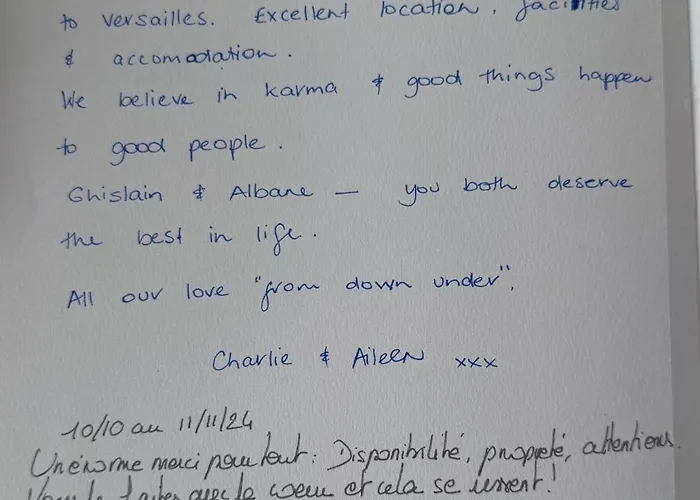 to Versailles. Excellent location, facilities
& accomodation.
We believe in karma & good things happen
to good people.
Ghislain & Albane — you both deserve
the best in life.
All our love "from down under",
Charlie & Aileen xxx
10/10 au 11/11/24
Un énorme merci pour tout : Disponibilité, propreté, attentions.
Vous le faites avec le coeur et cela se ressent !